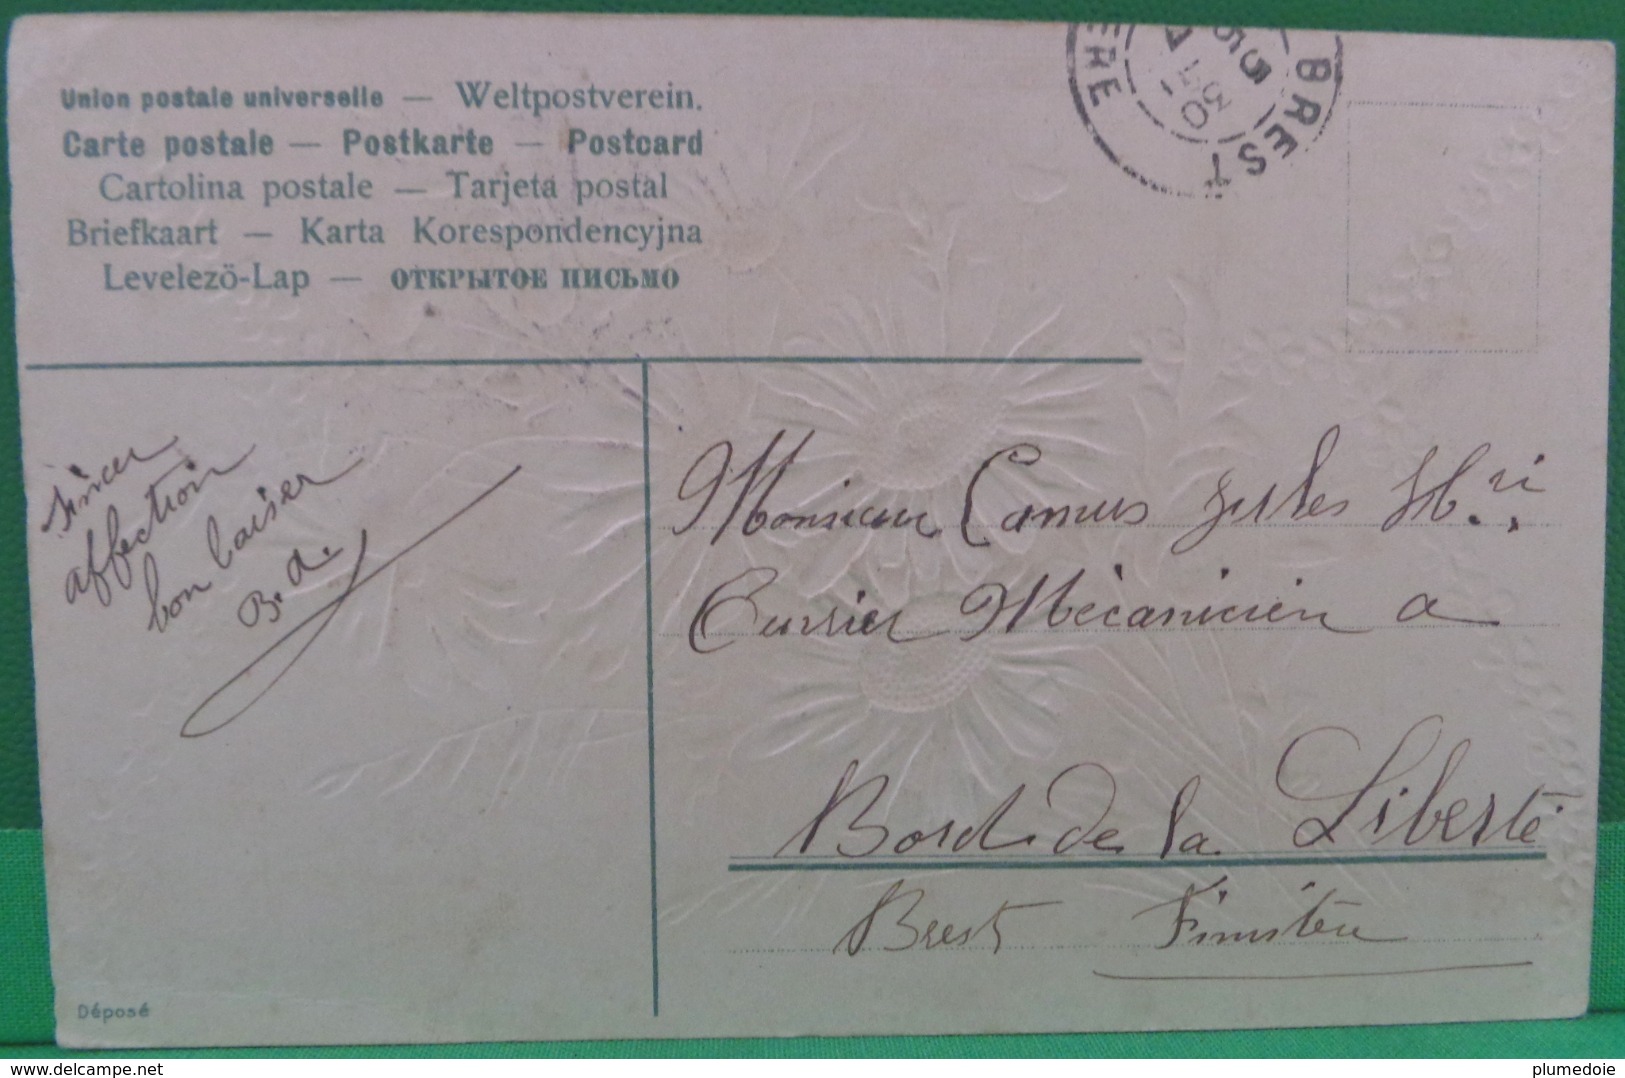 Union postale universelle — Weltpostverein.
Carte postale — Postkarte — Postcard
Cartolina postale — Tarjeta postal
Briefkaart — Karta Korespondencyjna
Levelezö-Lap — ОТКРЫТОЕ ПИСЬМО
BREST
affection
bon baiser
B. A.
Monsieur Camus Jules
Ouvrier Mècanicien a
Bord de la Liberté
Brest Finistère
Déposé
delcampe.net
plumedoie